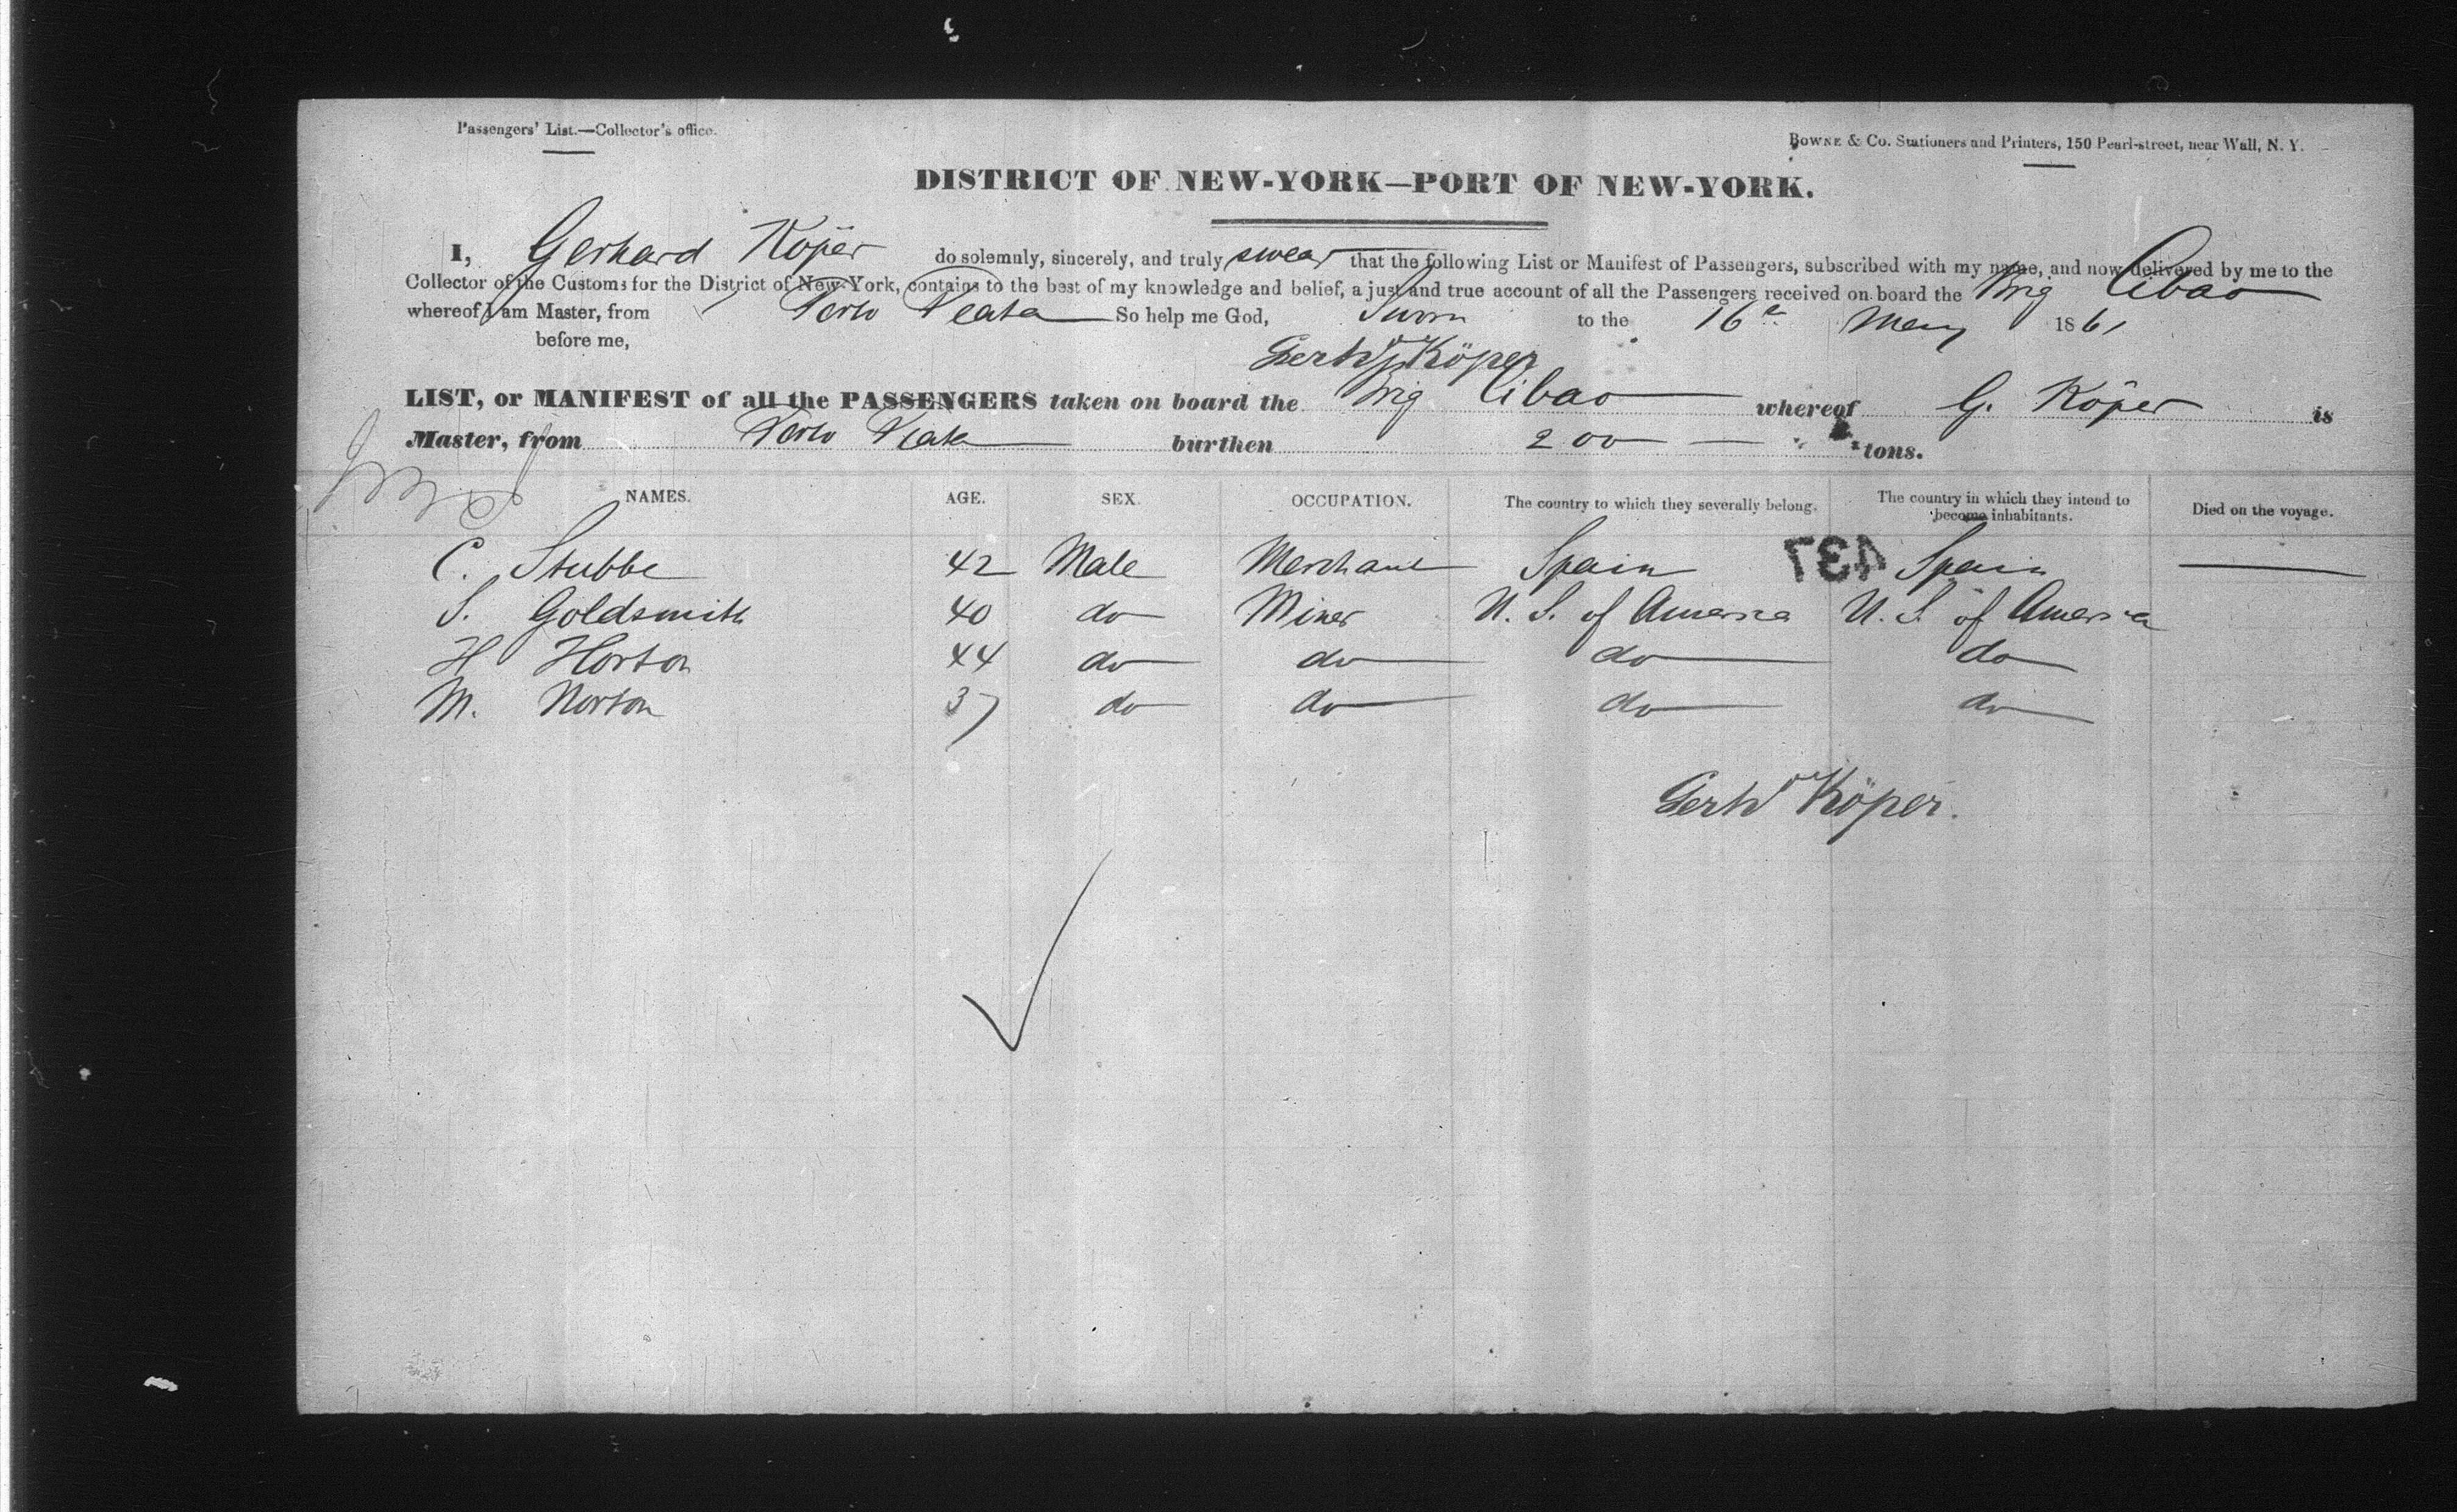 Passengers' List.—Collector's office.
BOWNE & Co. Stationers and Printers, 150 Pearl-street, near Wall, N. Y.
DISTRICT OF NEW-YORK—PORT OF NEW-YORK.
I, Gerhard Köper do solemnly, sincerely, and truly swear that the following List or Manifest of Passengers, subscribed with my name, and now delivered by me to the
Collector of the Customs for the District of New-York, contains to the best of my knowledge and belief, a just and true account of all the Passengers received on board the Brig Cibao
whereof I am Master, from Porto Plata So help me God, Sworn to the 16 May 1861
before me,
Gerhd Köper
LIST, or MANIFEST of all the PASSENGERS taken on board the Brig Cibao whereof G. Köper is
Master, from Porto Plata burthen 200 tons.
NAMES. AGE. SEX. OCCUPATION. The country to which they severally belong. The country in which they intend to become inhabitants. Died on the voyage.
C. Stubbe 42 Male Merchant Spain 437 Spain
S. Goldsmith 40 do Miner U. S. of America U. S. of America
H Horton 44 do do do do
M. Norton 37 do do do do
Gerhd Köper.